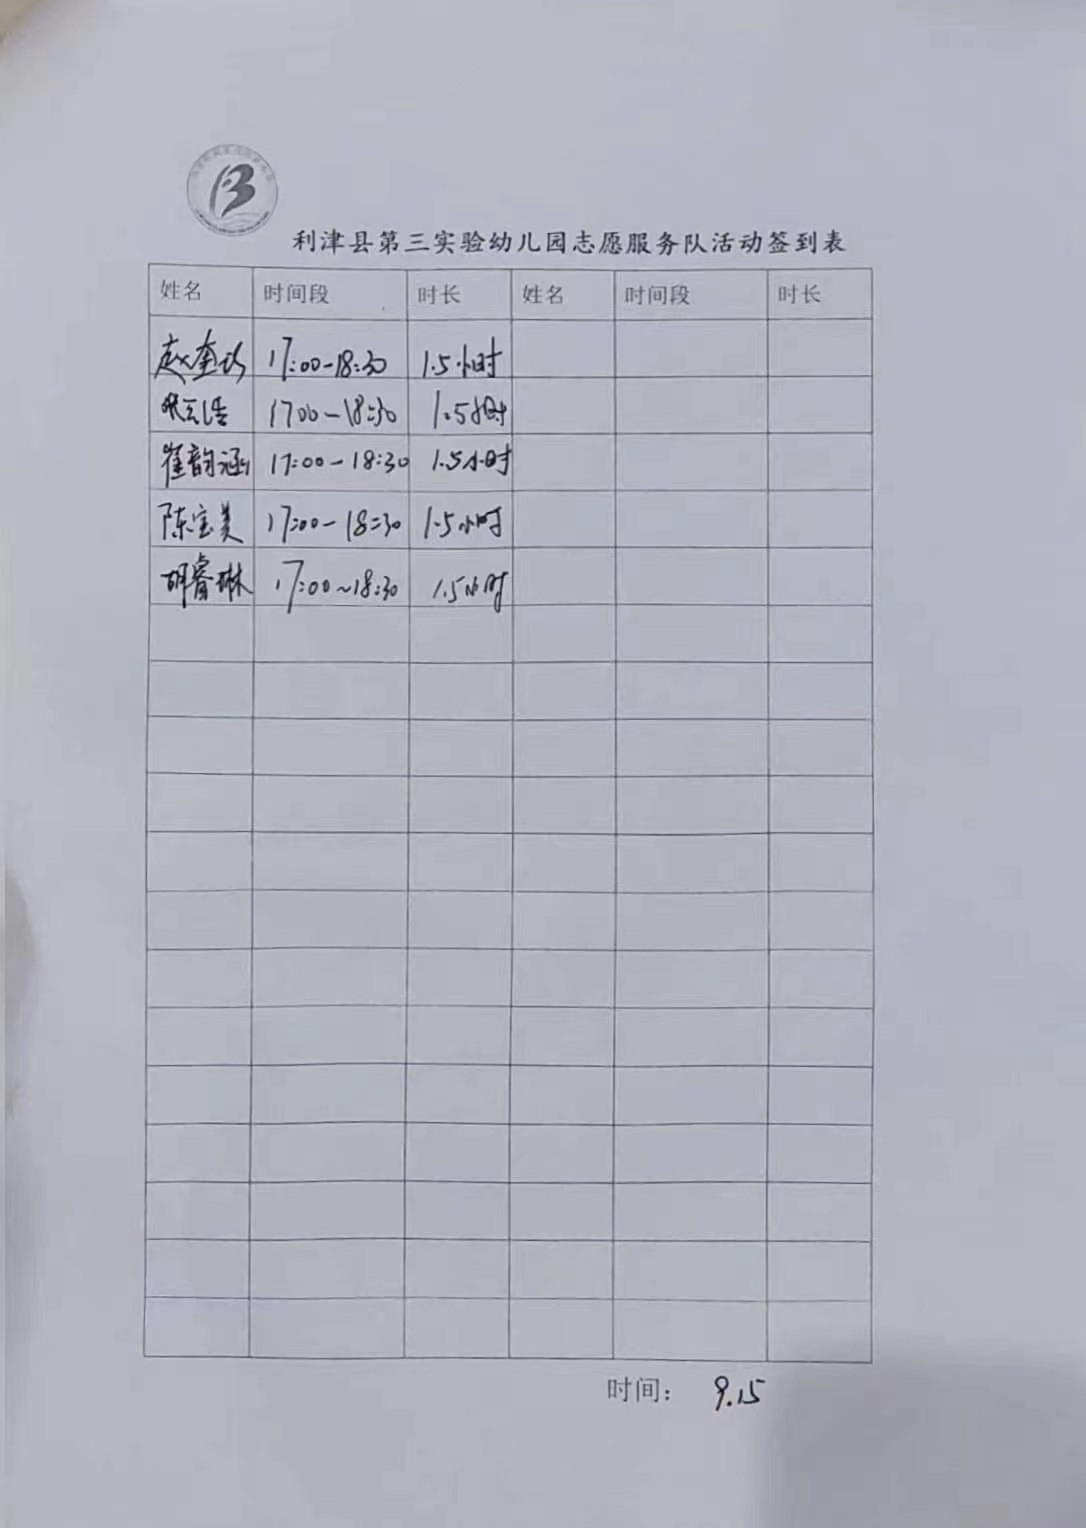 利津县第三实验幼儿园志愿服务队活动签到表
姓名 时间段 时长 姓名 时间段 时长
赵奎 17:00-18:30 1.5小时
张云浩 1700-18:30 1.5小时
崔韵涵 17:00-18:30 1.5小时
陈宝美 17:00-18:30 1.5小时
胡睿琳 17:00~18:30 1.5小时
时间: 9.15